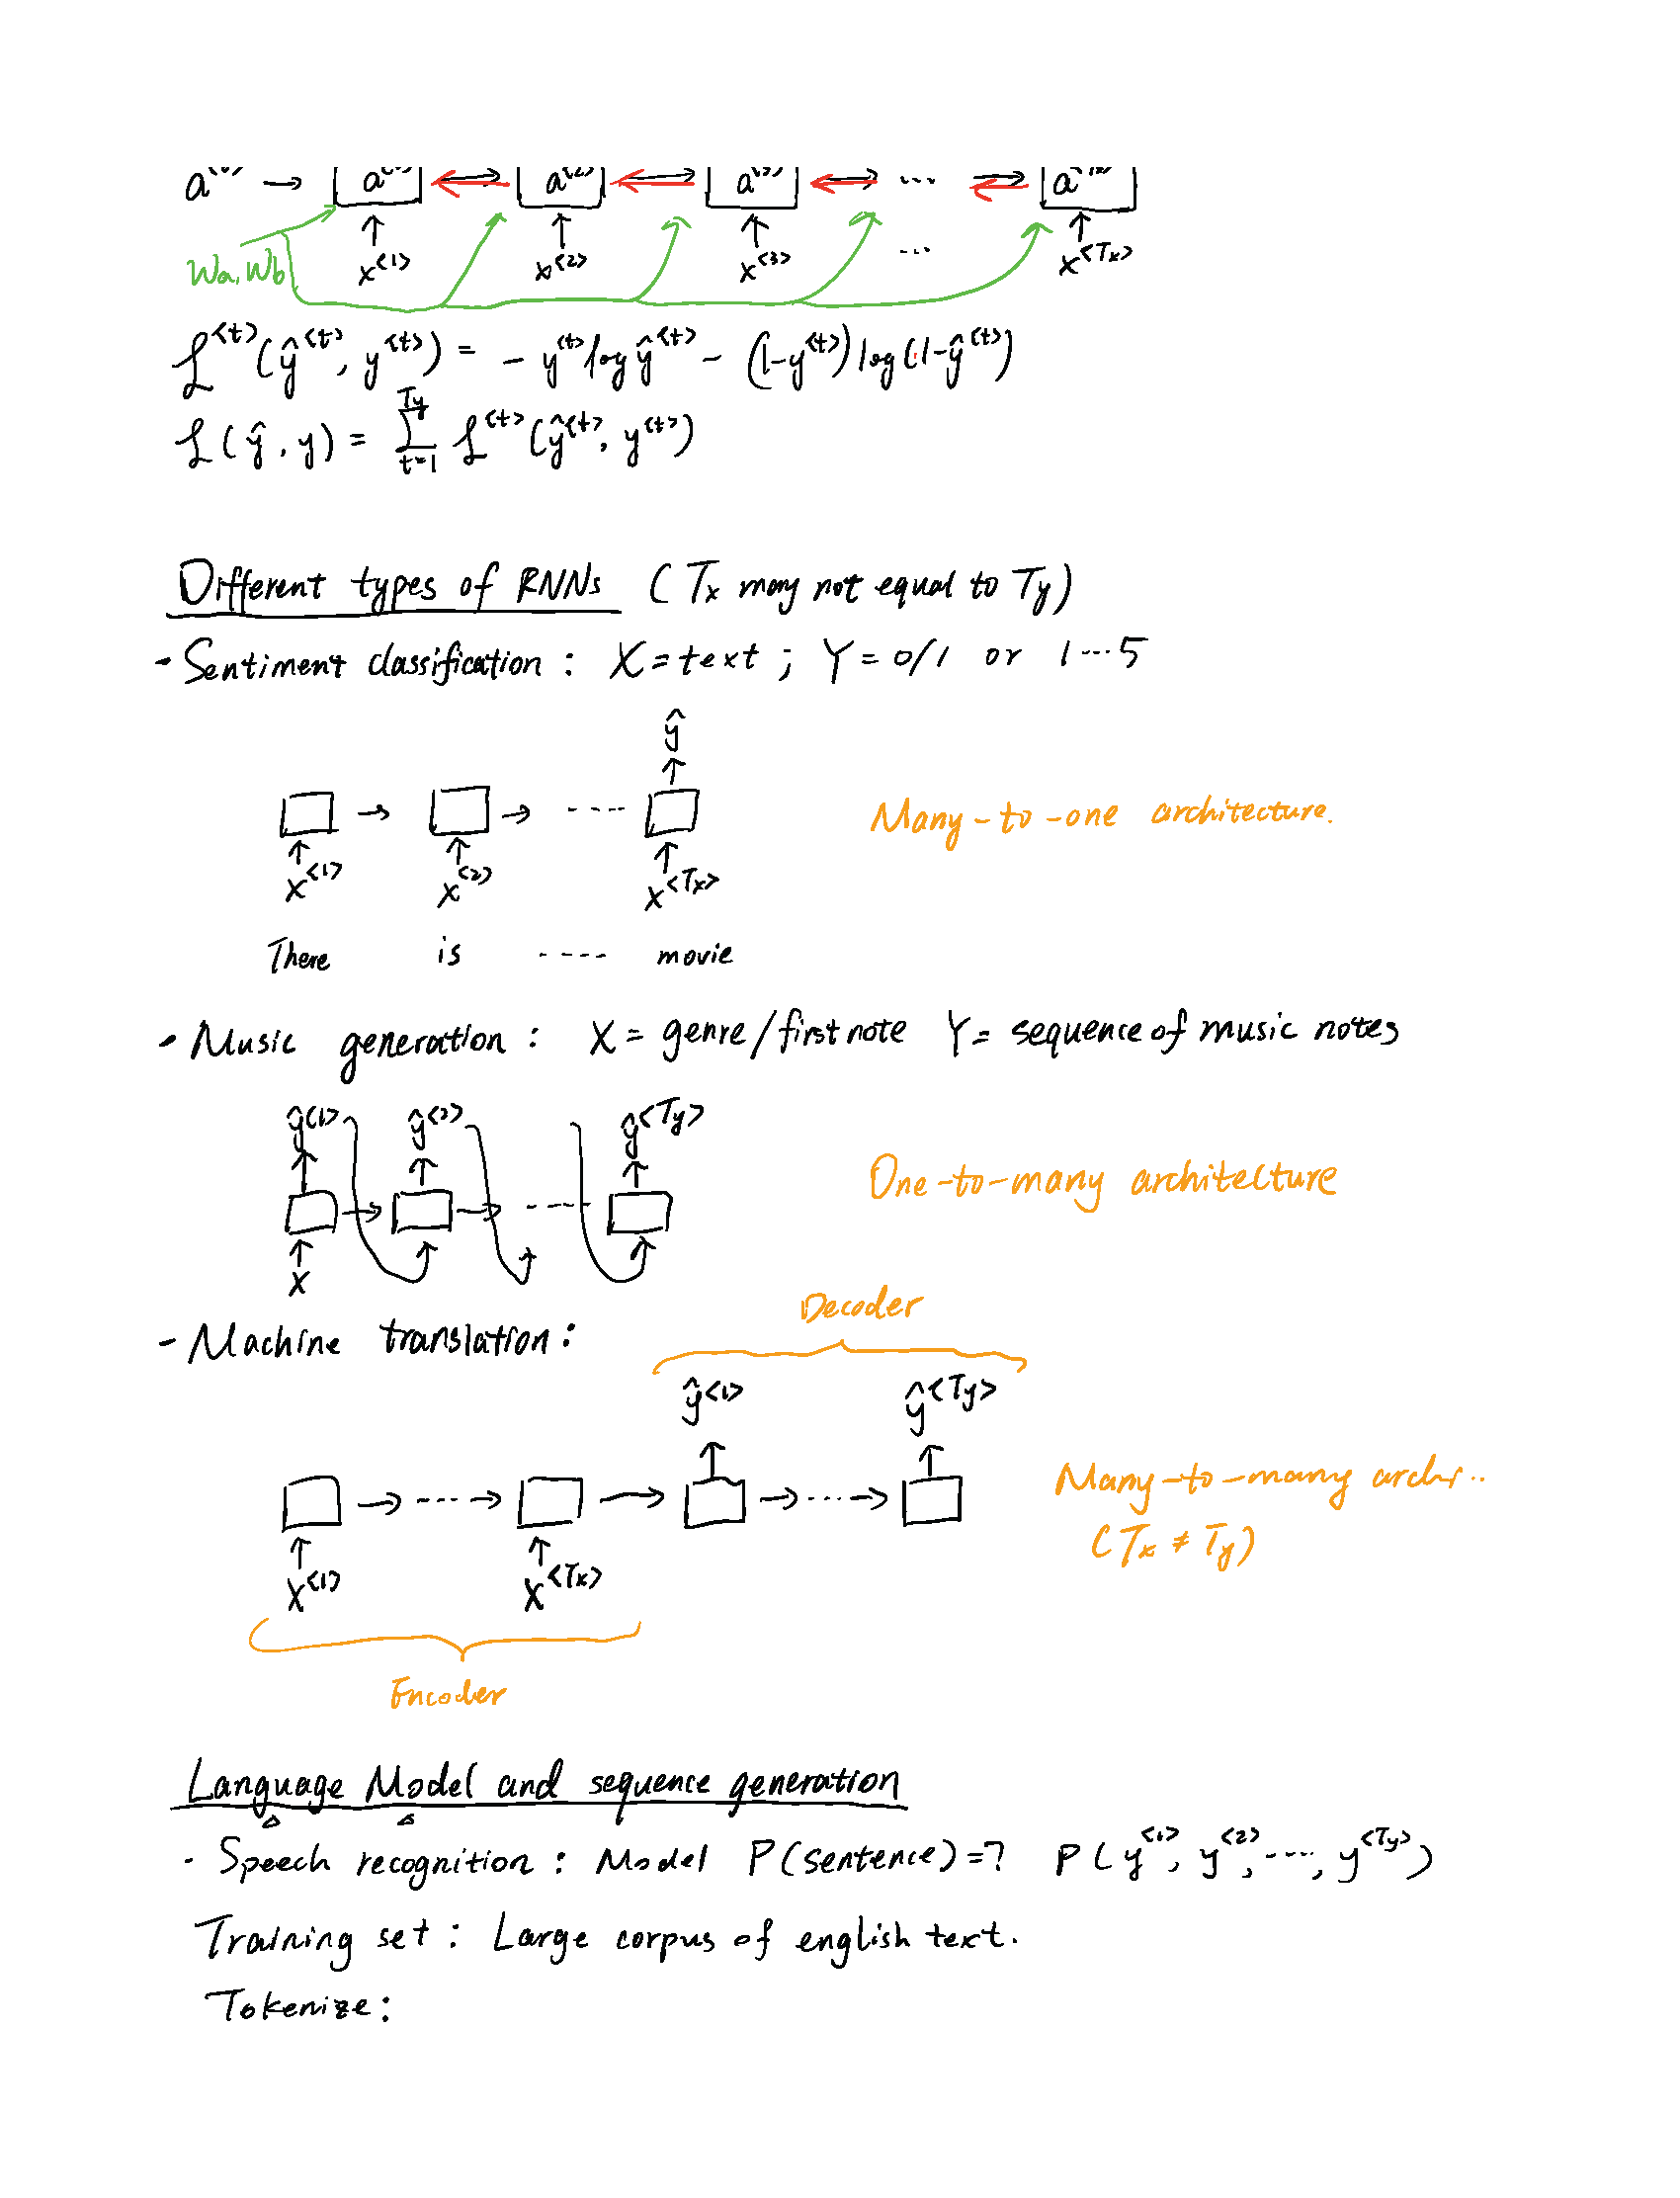 a → a a a ... a
x<1> x<2> x<3> ... x<Tx>
Wa, Wb
ℒ<t>(ŷ<t>, y<t>) = - y<t> log ŷ<t> - (1-y<t>) log(1-ŷ<t>)
ℒ(ŷ, y) = Σ_{t=1}^{Ty} ℒ<t>(ŷ<t>, y<t>)
Different types of RNNs (Tx may not equal to Ty)
- Sentiment classification : X = text ; Y = 0/1 or 1 ... 5
ŷ
→ → ----
Many-to-one architecture.
x<1> x<2> x<Tx>
There is ---- movie
- Music generation : X = genre/first note Y = sequence of music notes
ŷ<1> ŷ<2> ŷ<Ty>
One-to-many architecture
x
Decoder
- Machine translation :
ŷ<1> ŷ<Ty>
→ ---- → → → ... →
Many-to-many archi..
(Tx ≠ Ty)
x<1> x<Tx>
Encoder
Language Model and sequence generation
· Speech recognition : Model P(sentence) = ? P(y<1>, y<2>, ----, y<Ty>)
Training set : Large corpus of english text.
Tokenize :